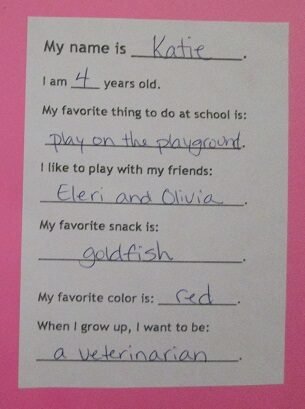 My name is Katie.
I am 4 years old.
My favorite thing to do at school is:
play on the playground.
I like to play with my friends:
Eleri and Olivia.
My favorite snack is:
goldfish.
My favorite color is: red.
When I grow up, I want to be:
a veterinarian.